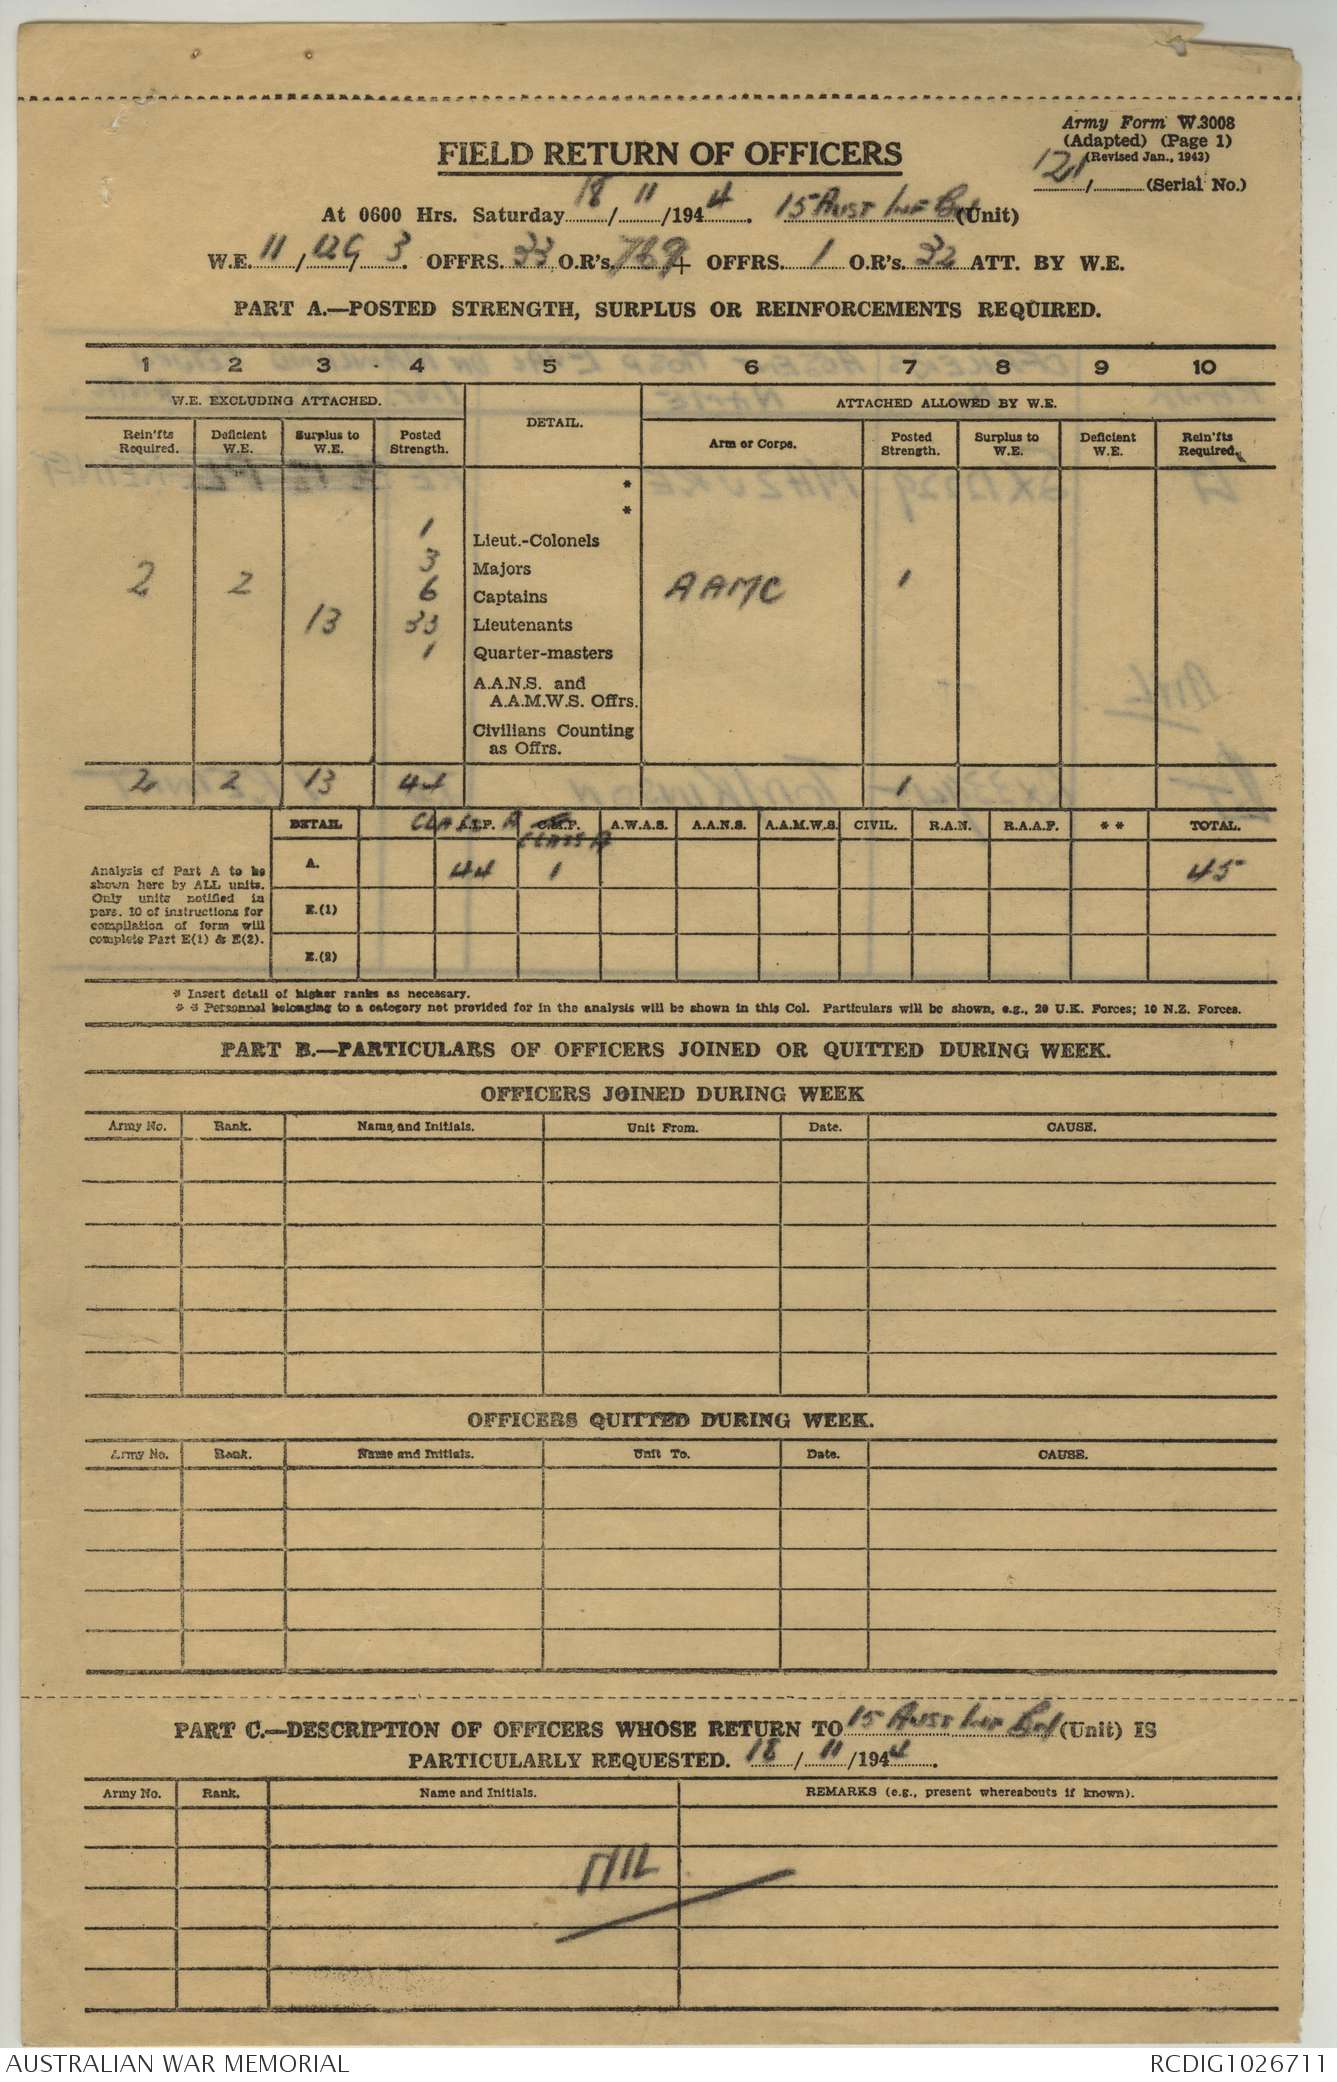 Army Form W.3008
(Adapted) (Page 1)
(Revised Jan., 1943)
121/ (Serial No.)
FIELD RETURN OF OFFICERS
At 0600 Hrs. Saturday 18/11/1944. 15 AUST INF BN (Unit)
W.E. 11/12G/3. OFFRS. 33 O.R's. 769 + OFFRS. 1 O.R's. 32 ATT. BY W.E.
PART A.—POSTED STRENGTH, SURPLUS OR REINFORCEMENTS REQUIRED.
1 2 3 4 5 6 7 8 9 10
W.E. EXCLUDING ATTACHED. DETAIL. ATTACHED ALLOWED BY W.E.
Rein'fts Required. Deficient W.E. Surplus to W.E. Posted Strength. Arm or Corps. Posted Strength. Surplus to W.E. Deficient W.E. Rein'fts Required.
*
*
1 Lieut.-Colonels
3 Majors
2 2 6 Captains AAMC 1
13 33 Lieutenants
1 Quarter-masters
A.A.N.S. and
A.A.M.W.S. Offrs.
Civilians Counting
as Offrs.
2 2 13 44 1
DETAIL CLASS A A.I.F. C.M.F. CLASS A A.W.A.S. A.A.N.S. A.A.M.W.S. CIVIL. R.A.N. R.A.A.F. * * TOTAL.
Analysis of Part A to be
shown here by ALL units.
Only units notified in
para. 10 of instructions for
compilation of form will
complete Part E(1) & E(2).
A. 44 1 45
E.(1)
E.(2)
* Insert detail of higher ranks as necessary.
* * Personnel belonging to a category not provided for in the analysis will be shown in this Col. Particulars will be shown, e.g., 20 U.K. Forces; 10 N.Z. Forces.
PART B.—PARTICULARS OF OFFICERS JOINED OR QUITTED DURING WEEK.
OFFICERS JOINED DURING WEEK
Army No. Rank. Name and Initials. Unit From. Date. CAUSE.
OFFICERS QUITTED DURING WEEK.
Army No. Rank. Name and Initials. Unit To. Date. CAUSE.
PART C.—DESCRIPTION OF OFFICERS WHOSE RETURN TO 15 AUST INF BN (Unit) IS
PARTICULARLY REQUESTED. 18/11/1944.
Army No. Rank. Name and Initials. REMARKS (e.g., present whereabouts if known).
NIL
AUSTRALIAN WAR MEMORIAL RCDIG1026711